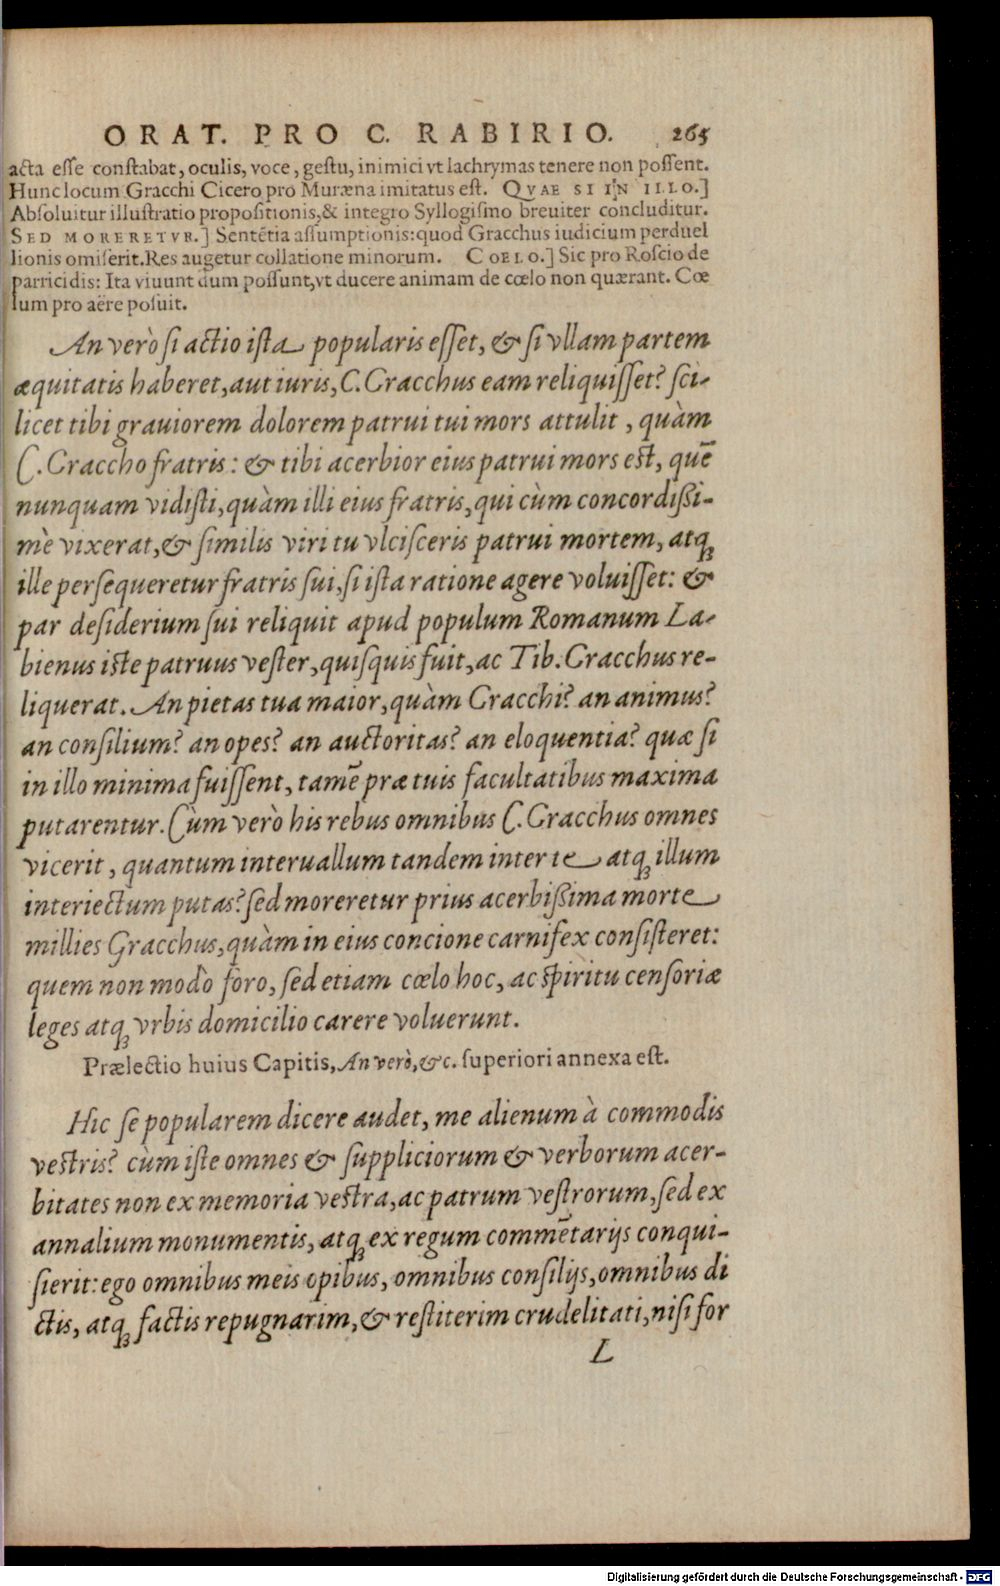 ORAT. PRO C. RABIRIO. 265
acta esse constabat, oculis, voce, gestu, inimici vt lachrymas tenere non possent.
Hunc locum Gracchi Cicero pro Muræna imitatus est. QVAE SI IN ILLO.]
Absoluitur illustratio propositionis,& integro Syllogismo breuiter concluditur.
SED MORERETVR.] Sentētia assumptionis: quod Gracchus iudicium perduel
lionis omiserit. Res augetur collatione minorum. COELO.] Sic pro Roscio de
parricidis: Ita viuunt dum possunt, vt ducere animam de cœlo non quærant. Cœ
lum pro aëre posuit.
An verò si actio ista popularis esset, & si vllam partem
æquitatis haberet, aut iuris, C. Gracchus eam reliquisset? sci-
licet tibi grauiorem dolorem patrui tui mors attulit, quàm
C. Graccho fratris: & tibi acerbior eius patrui mors est, quē
nunquam vidisti, quàm illi eius fratris, qui cùm concordißi-
mè vixerat, & similis viri tu vlcisceris patrui mortem, atq;
ille persequeretur fratris sui, si ista ratione agere voluisset: &
par desiderium sui reliquit apud populum Romanum La-
bienus iste patruus vester, quisquis fuit, ac Tib. Gracchus re-
liquerat. An pietas tua maior, quàm Gracchi? an animus?
an consilium? an opes? an auctoritas? an eloquentia? quæ si
in illo minima fuissent, tamē præ tuis facultatibus maxima
putarentur. Cùm verò his rebus omnibus C. Gracchus omnes
vicerit, quantum interuallum tandem inter te atq; illum
interiectum putas? sed moreretur prius acerbißima morte
millies Gracchus, quàm in eius concione carnifex consisteret:
quem non modò foro, sed etiam cœlo hoc, ac spiritu censoriæ
leges atq; vrbis domicilio carere voluerunt.
Prælectio huius Capitis, An verò, &c. superiori annexa est.
Hic se popularem dicere audet, me alienum à commodis
vestris? cùm iste omnes & suppliciorum & verborum acer-
bitates non ex memoria vestra, ac patrum vestrorum, sed ex
annalium monumentis, atq; ex regum commētarijs conqui-
sierit: ego omnibus meis opibus, omnibus consilijs, omnibus di
ctis, atq; factis repugnarim, & restiterim crudelitati, nisi for
L
Digitalisierung gefördert durch die Deutsche Forschungsgemeinschaft - DFG